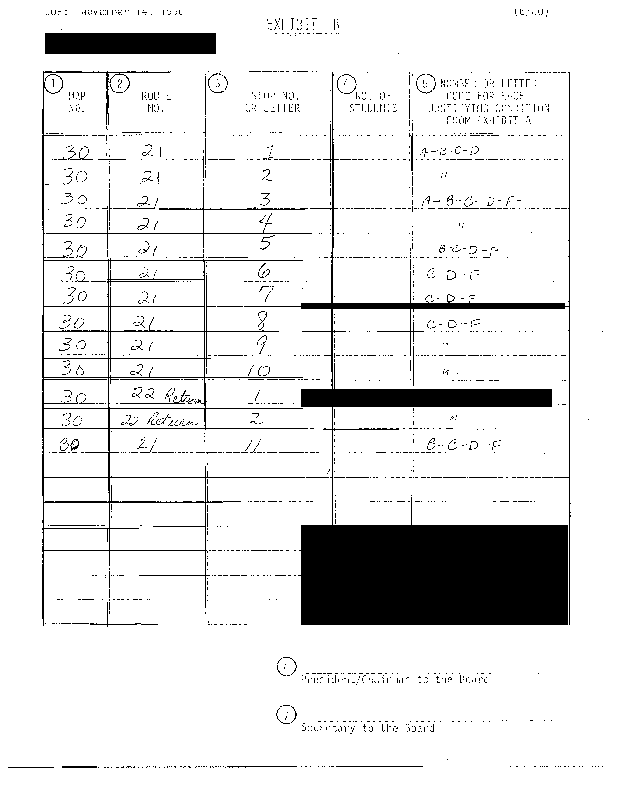 EXHIBIT B
1 MAP NO.
2 ROUTE NO.
3 STOP NO. OR LETTER
4 NO. OF STUDENTS
5 NUMBER OR LETTER CODE FOR EACH JUSTIFYING CONDITION FROM EXHIBIT A
30 21 1 A-B-C-D
30 21 2 "
30 21 3 A-B-C-D-F-
30 21 4 "
30 21 5 B-C-D-F
30 21 6 C-D-F
30 21 7 C-D-F
30 21 8 C-D-F
30 21 9 "
30 21 10 "
30 22 Return 1
30 22 Return 2 "
30 21 11 B-C-D-F
6
President/Chairman to the Board
7
Secretary to the Board